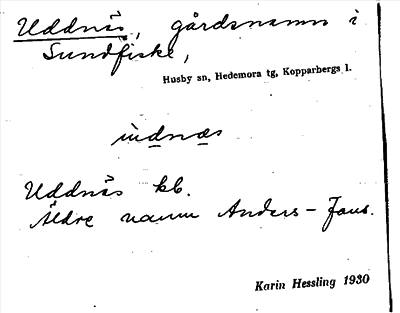 Uddnäs, gårdsnamn i
Sundfiske,
Husby sn, Hedemora tg, Kopparbergs l.
Uddnäs kb.
Äldre namn Anders-Jans.
Karin Hessling 1930